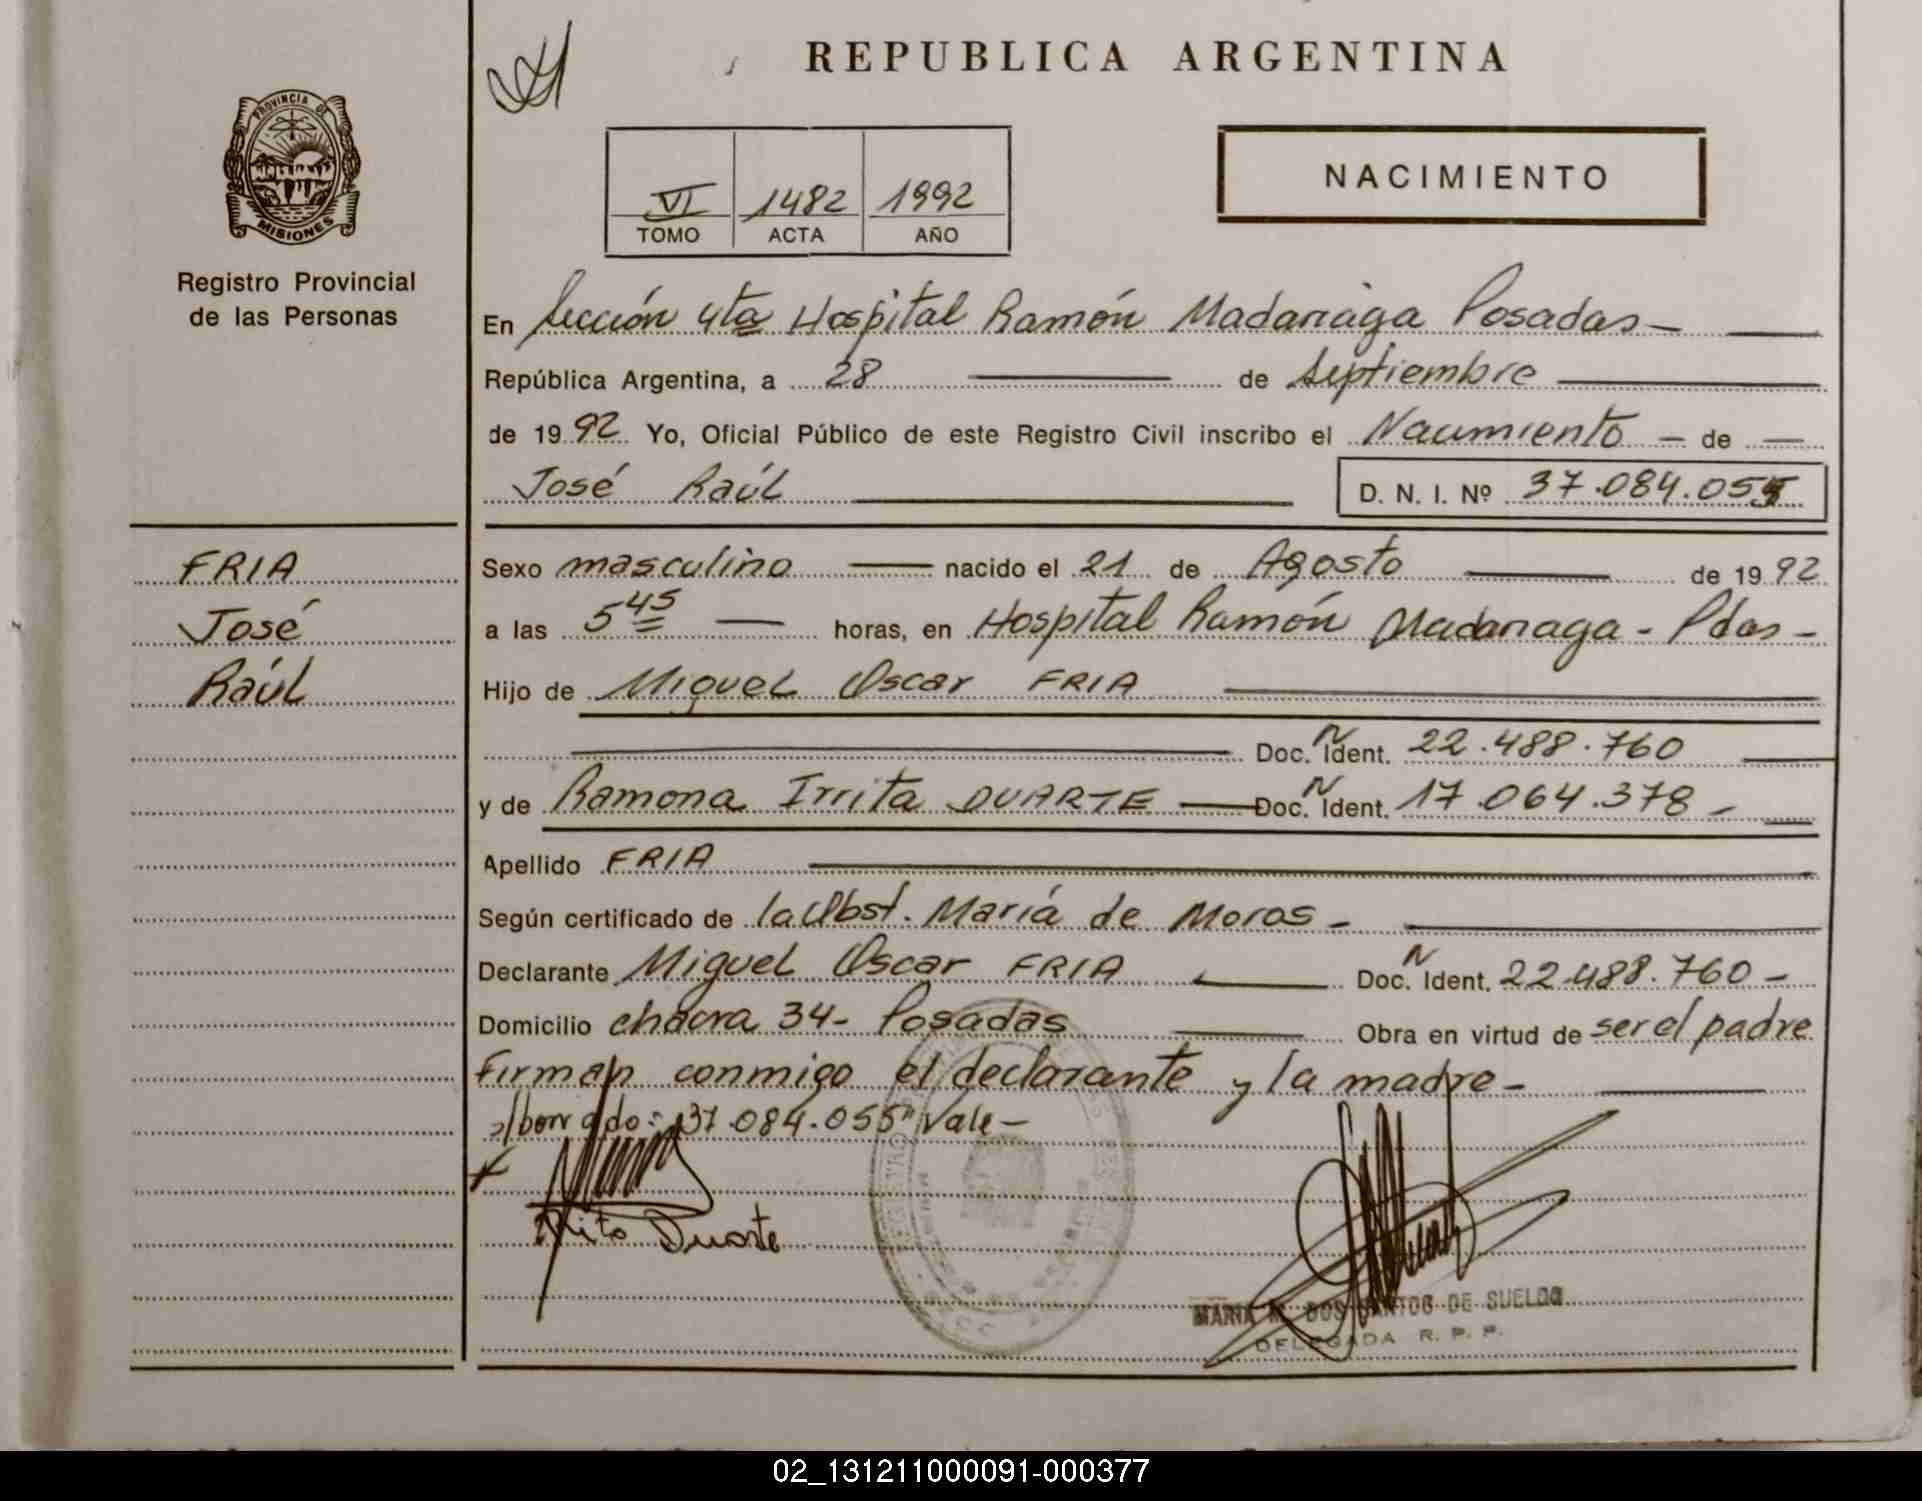 REPUBLICA ARGENTINA
PROVINCIA DE
MISIONES
Registro Provincial
de las Personas
VI 1482 1992
TOMO ACTA AÑO
NACIMIENTO
En Sección 4ta Hospital Ramón Madariaga Posadas—
República Argentina, a 28 de Septiembre
de 1992 Yo, Oficial Público de este Registro Civil inscribo el Nacimiento — de —
José Raúl D. N. I. Nº 37.084.055
FRIA
José
Raúl
Sexo masculino nacido el 21 de Agosto de 1992
a las 5 45 horas, en Hospital Ramón Madariaga - Pdas -
Hijo de Miguel Oscar FRIA
Doc. N Ident. 22.488.760
y de Ramona Irrita DUARTE Doc. N Ident. 17.064.378 -
Apellido FRIA
Según certificado de la Obst. María de Moros -
Declarante Miguel Oscar FRIA Doc. N Ident. 22.488.760 -
Domicilio chacra 34- Posadas Obra en virtud de ser el padre
Firman conmigo el declarante y la madre -
s/borrado: "37.084.055" Vale -
Duarte
MARIA M. DOS SANTOS DE SUELDO
DELEGADA R. P. P.
02_131211000091-000377